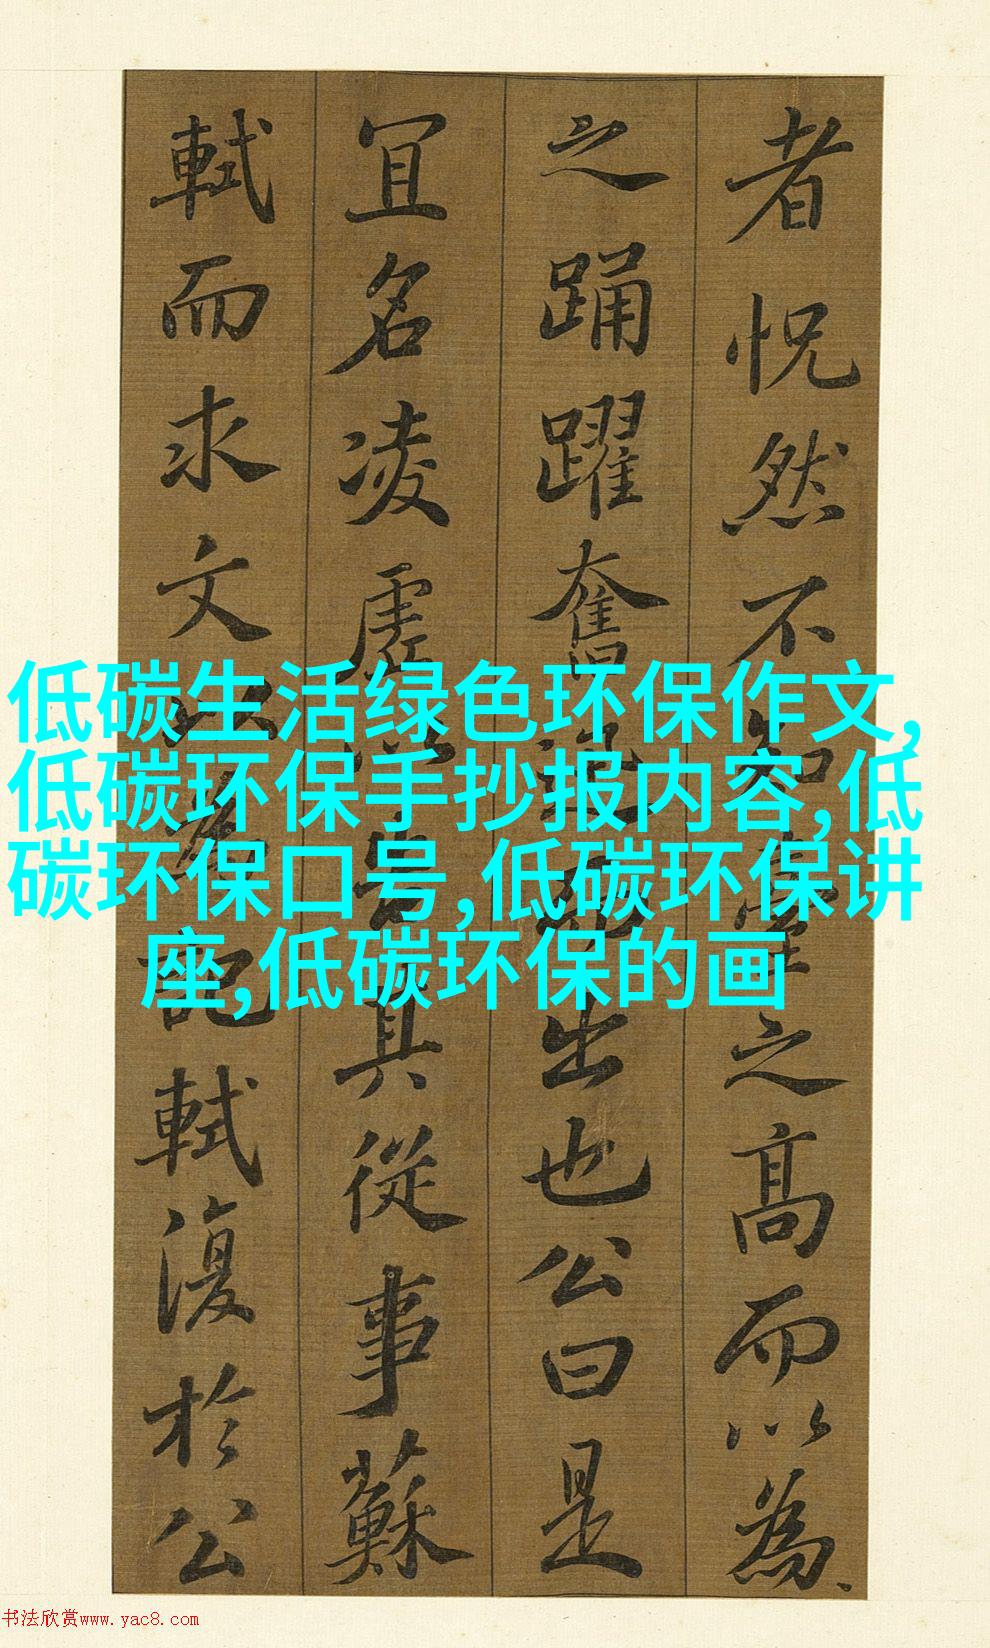 者怳然不知臺之高而以為
之踊躍奮迅而出也公曰是
宜名凌虛以告其從事蘇
軾而求文以為記軾復於公
低碳生活绿色环保作文,
低碳环保手抄报内容,低
碳环保口号,低碳环保讲
座,低碳环保的画
书法欣赏www.yac8.com